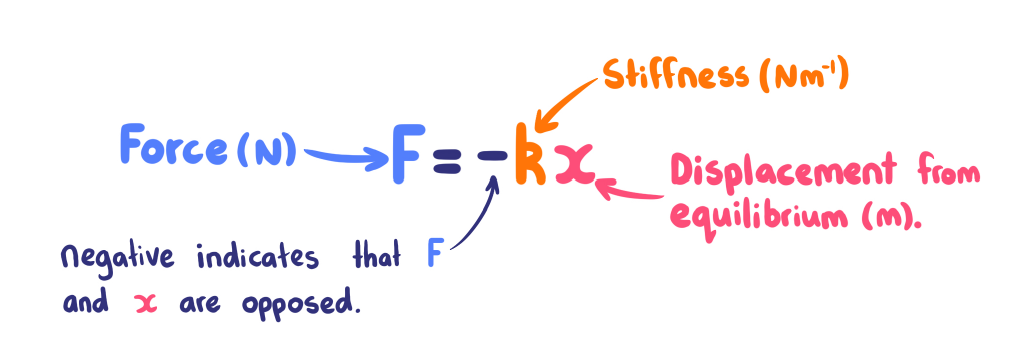 Stiffness (Nm⁻¹)
Force (N)
F = - k x
Displacement from
equilibrium (m).
negative indicates that F
and x are opposed.